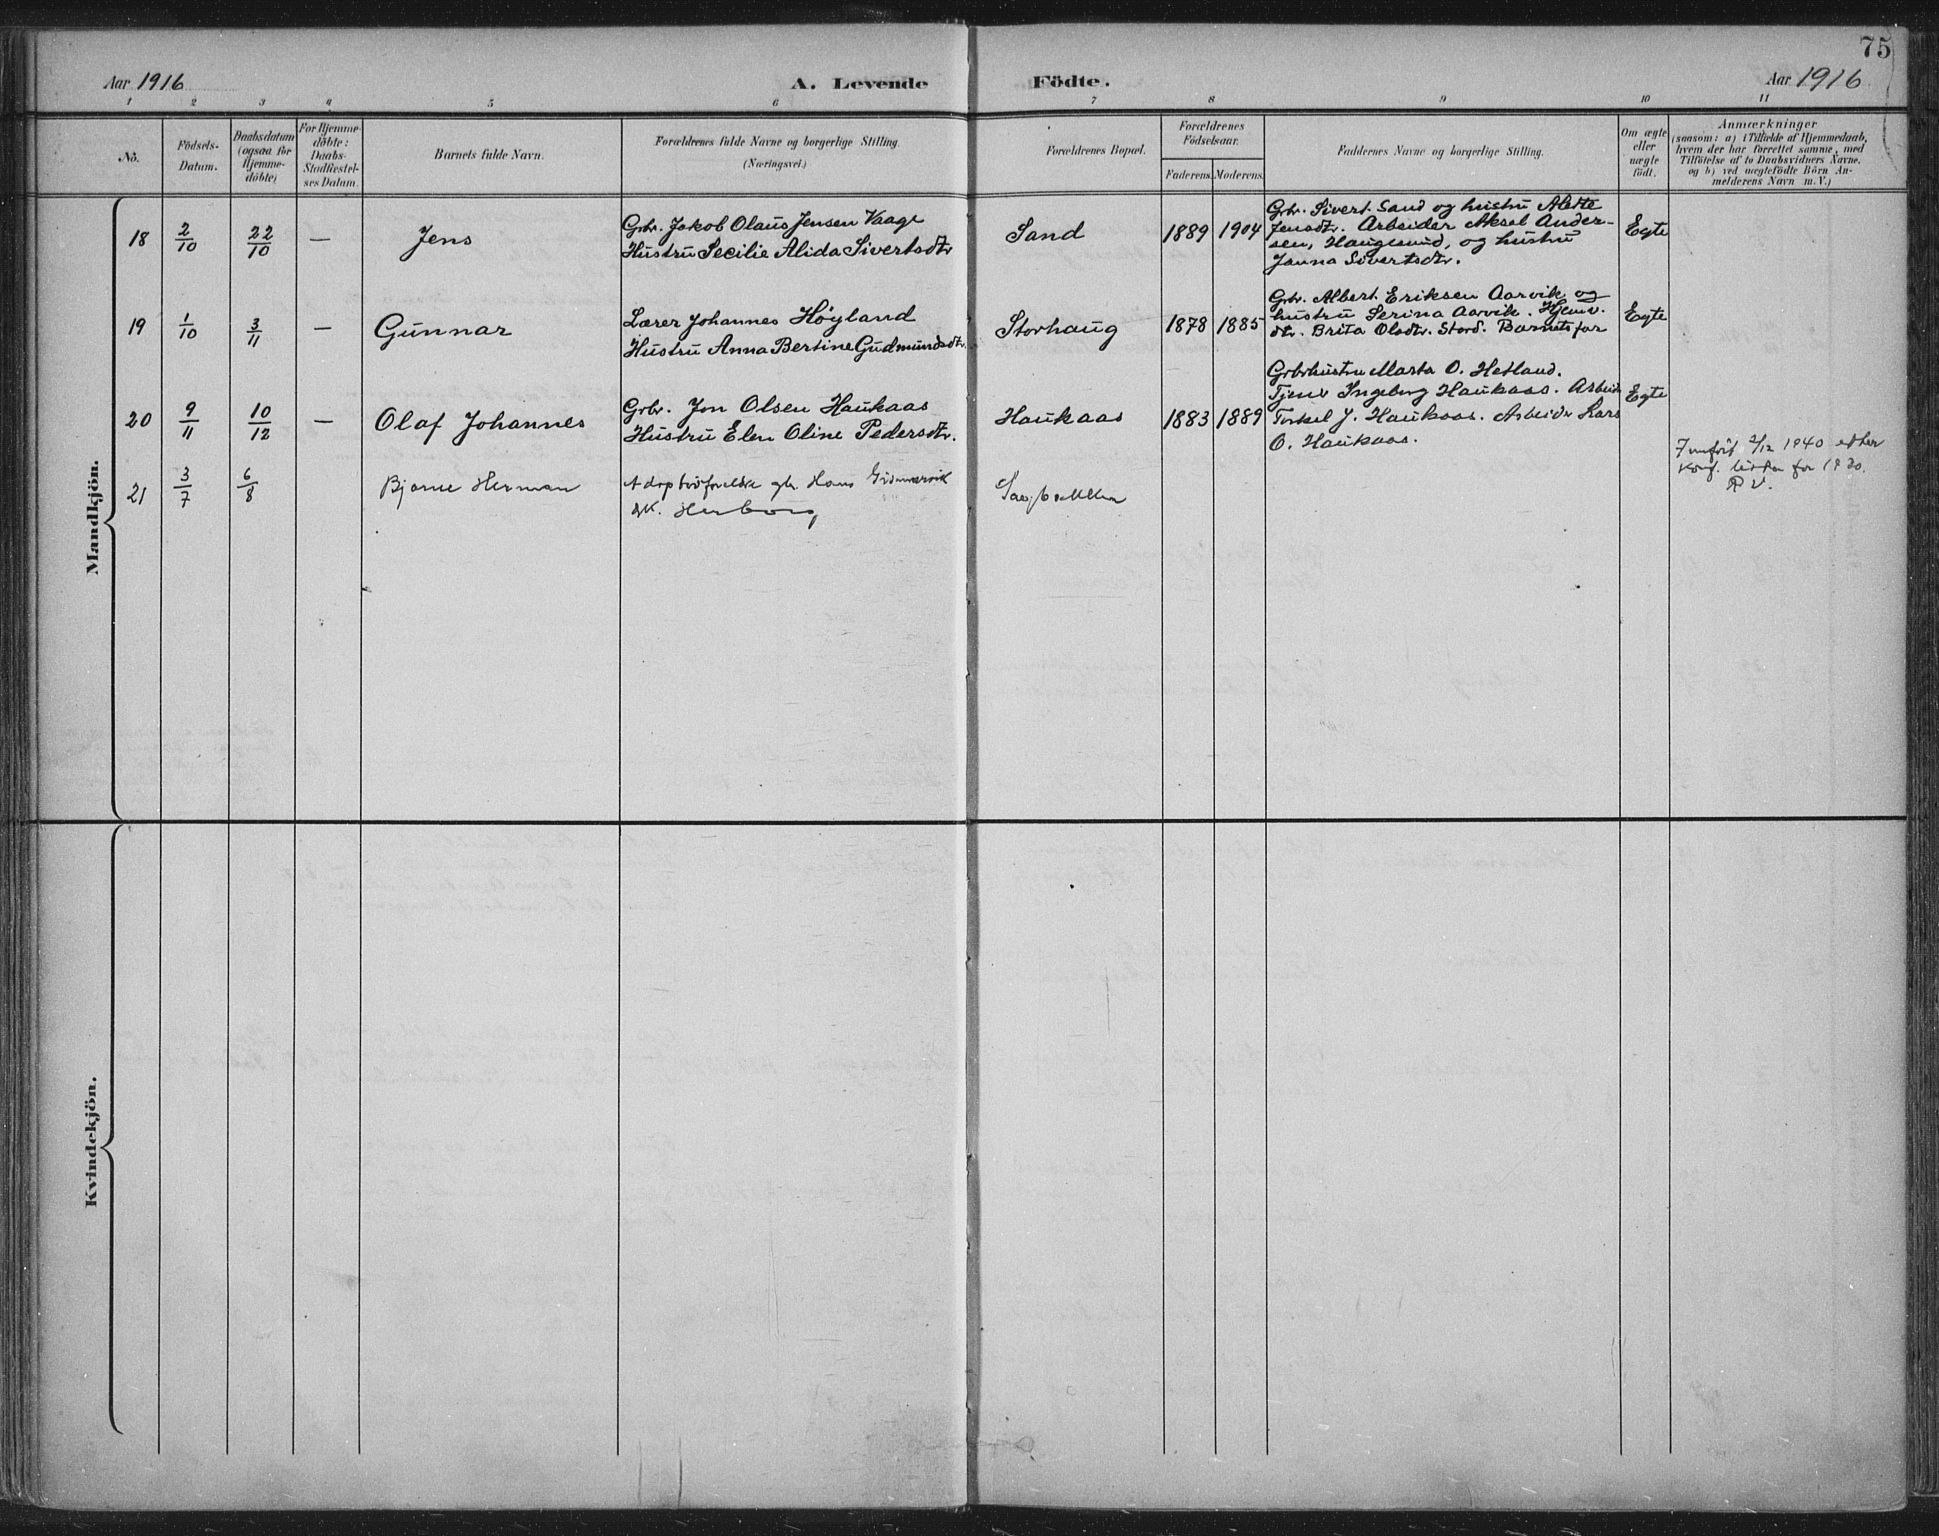 75
Aar 1916
A. Levende Födte.
Aar 1916
1 2 3 4 5 6 7 8 9 10 11
No.
Födsels-
Datum.
Daabsdatum
(ogsaa for
Hjemme-
döbte)
For Hjemme-
döbte:
Daabs-
Stadfæstel-
ses Datum.
Barnets fulde Navn.
Forældrenes fulde Navne og borgerlige Stilling.
(Næringsvei.)
Forældrenes Bopæl.
Forældrenes
Födselsaar.
Faderens. Moderens.
Faddernes Navne og borgerlige Stilling.
Om ægte
eller
uægte
födt.
Anmærkninger
(saasom: a) i Tilfælde af Hjemmedaab,
hvem der har forrettet samme, med
Tilföielse af to Daabsvidners Navne.
og b) ved uægtefödte Börn An-
melderens Navn m. V.)
Mandkjön.
18 2/10 22/10 — Jens
Grbr. Jakob Olaus Jensen Vaage
Hustru Secilie Alida Sivertsdtr
Sand 1889 1904
Grbr. Sivert Sand og hustru Alette
Jensdtr. Arbeider Aksel Ander-
sen, Haugesund, og hustru
Janna Sivertsdtr.
Egte
19 1/10 3/11 — Gunnar
Lærer Johannes Høyland
Hustru Anna Bertine Gudmundsdtr.
Storhaug 1878 1885
Grbr. Albert Eriksen Aarvik og
hustru Serina Aarvik. Hjemv.
dtr. Brita Olsdtr. Stord. Barnets far
Egte
20 9/11 10/12 — Olaf Johannes
Grbr. Jon Olsen Haukaas
Hustru Elen Oline Pedersdtr.
Haukaas 1883 1889
Grbrhustru Marta O. Hetland.
Tjener Ingeborg Haukaas. Arbeider
Torkel J. Haukaas. Arbeider Lars
O. Haukaas.
Egte
21 3/7 6/8 Bjarne Herman
Adoptivforeldre gbr. Hans
Herborg
Innført 2/12 1940 etter
konf. listen for 1930.
Kvindekjön.